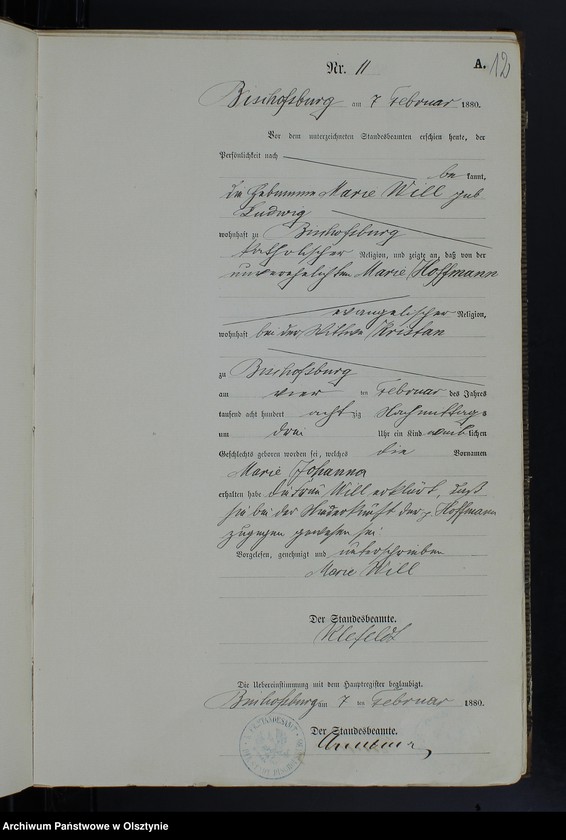 A. 12
Nr. 11
Bischofsburg am 7 Februar 1880.
Vor dem unterzeichneten Standesbeamten erschien heute, der
Persönlichkeit nach
be kannt,
die Hebamme Marie Will geb
Ludwig
wohnhaft zu Bischofsburg
katholischer Religion, und zeigte an, daß von der
unverehelichten Marie Hoffmann
evangelischer Religion,
wohnhaft bei der Wittwe Kristan
zu Bischofsburg
am vier ten Februar des Jahres
tausend acht hundert acht zig Nachmittags
um drei Uhr ein Kind weiblichen
Geschlechts geboren worden sei, welches die Vornamen
Marie Johanna
erhalten habe die Frau Will erklärt, daß
sie bei der Niederkunft der p Hoffmann
zugegen gewesen sei
Vorgelesen, genehmigt und unterschrieben
Marie Will
Der Standesbeamte.
Klefeldt
Die Uebereinstimmung mit dem Hauptregister beglaubigt.
Bischofsburg am 7 ten Februar 1880.
Der Standesbeamte.
Archiwum Państwowe w Olsztynie